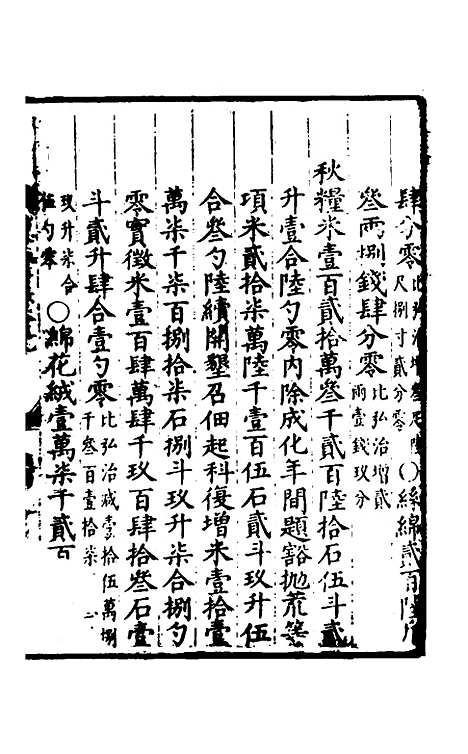 肆分零尺捌寸貳分零〇絲綿貳百陸斤
叁兩捌錢肆分零比弘治增貳兩壹錢玖分
秋糧米壹百貳拾萬叁千貳百陸拾石伍斗貳
升壹合陸勺零内除成化年間題豁抛荒等
項米貳拾柒萬陸千壹百伍石貳斗玖升伍
合叁勺陸續開墾召佃起科復增米壹拾壹
萬柒千柒百捌拾柒石捌斗玖升柒合捌勺
零實徵米壹百肆萬肆千玖百肆拾叁石壹
斗貳升肆合壹勺零比弘治減壹拾伍萬捌千叁百壹拾柒
玖升柒合勺零〇綿花絨壹萬柒千貳百